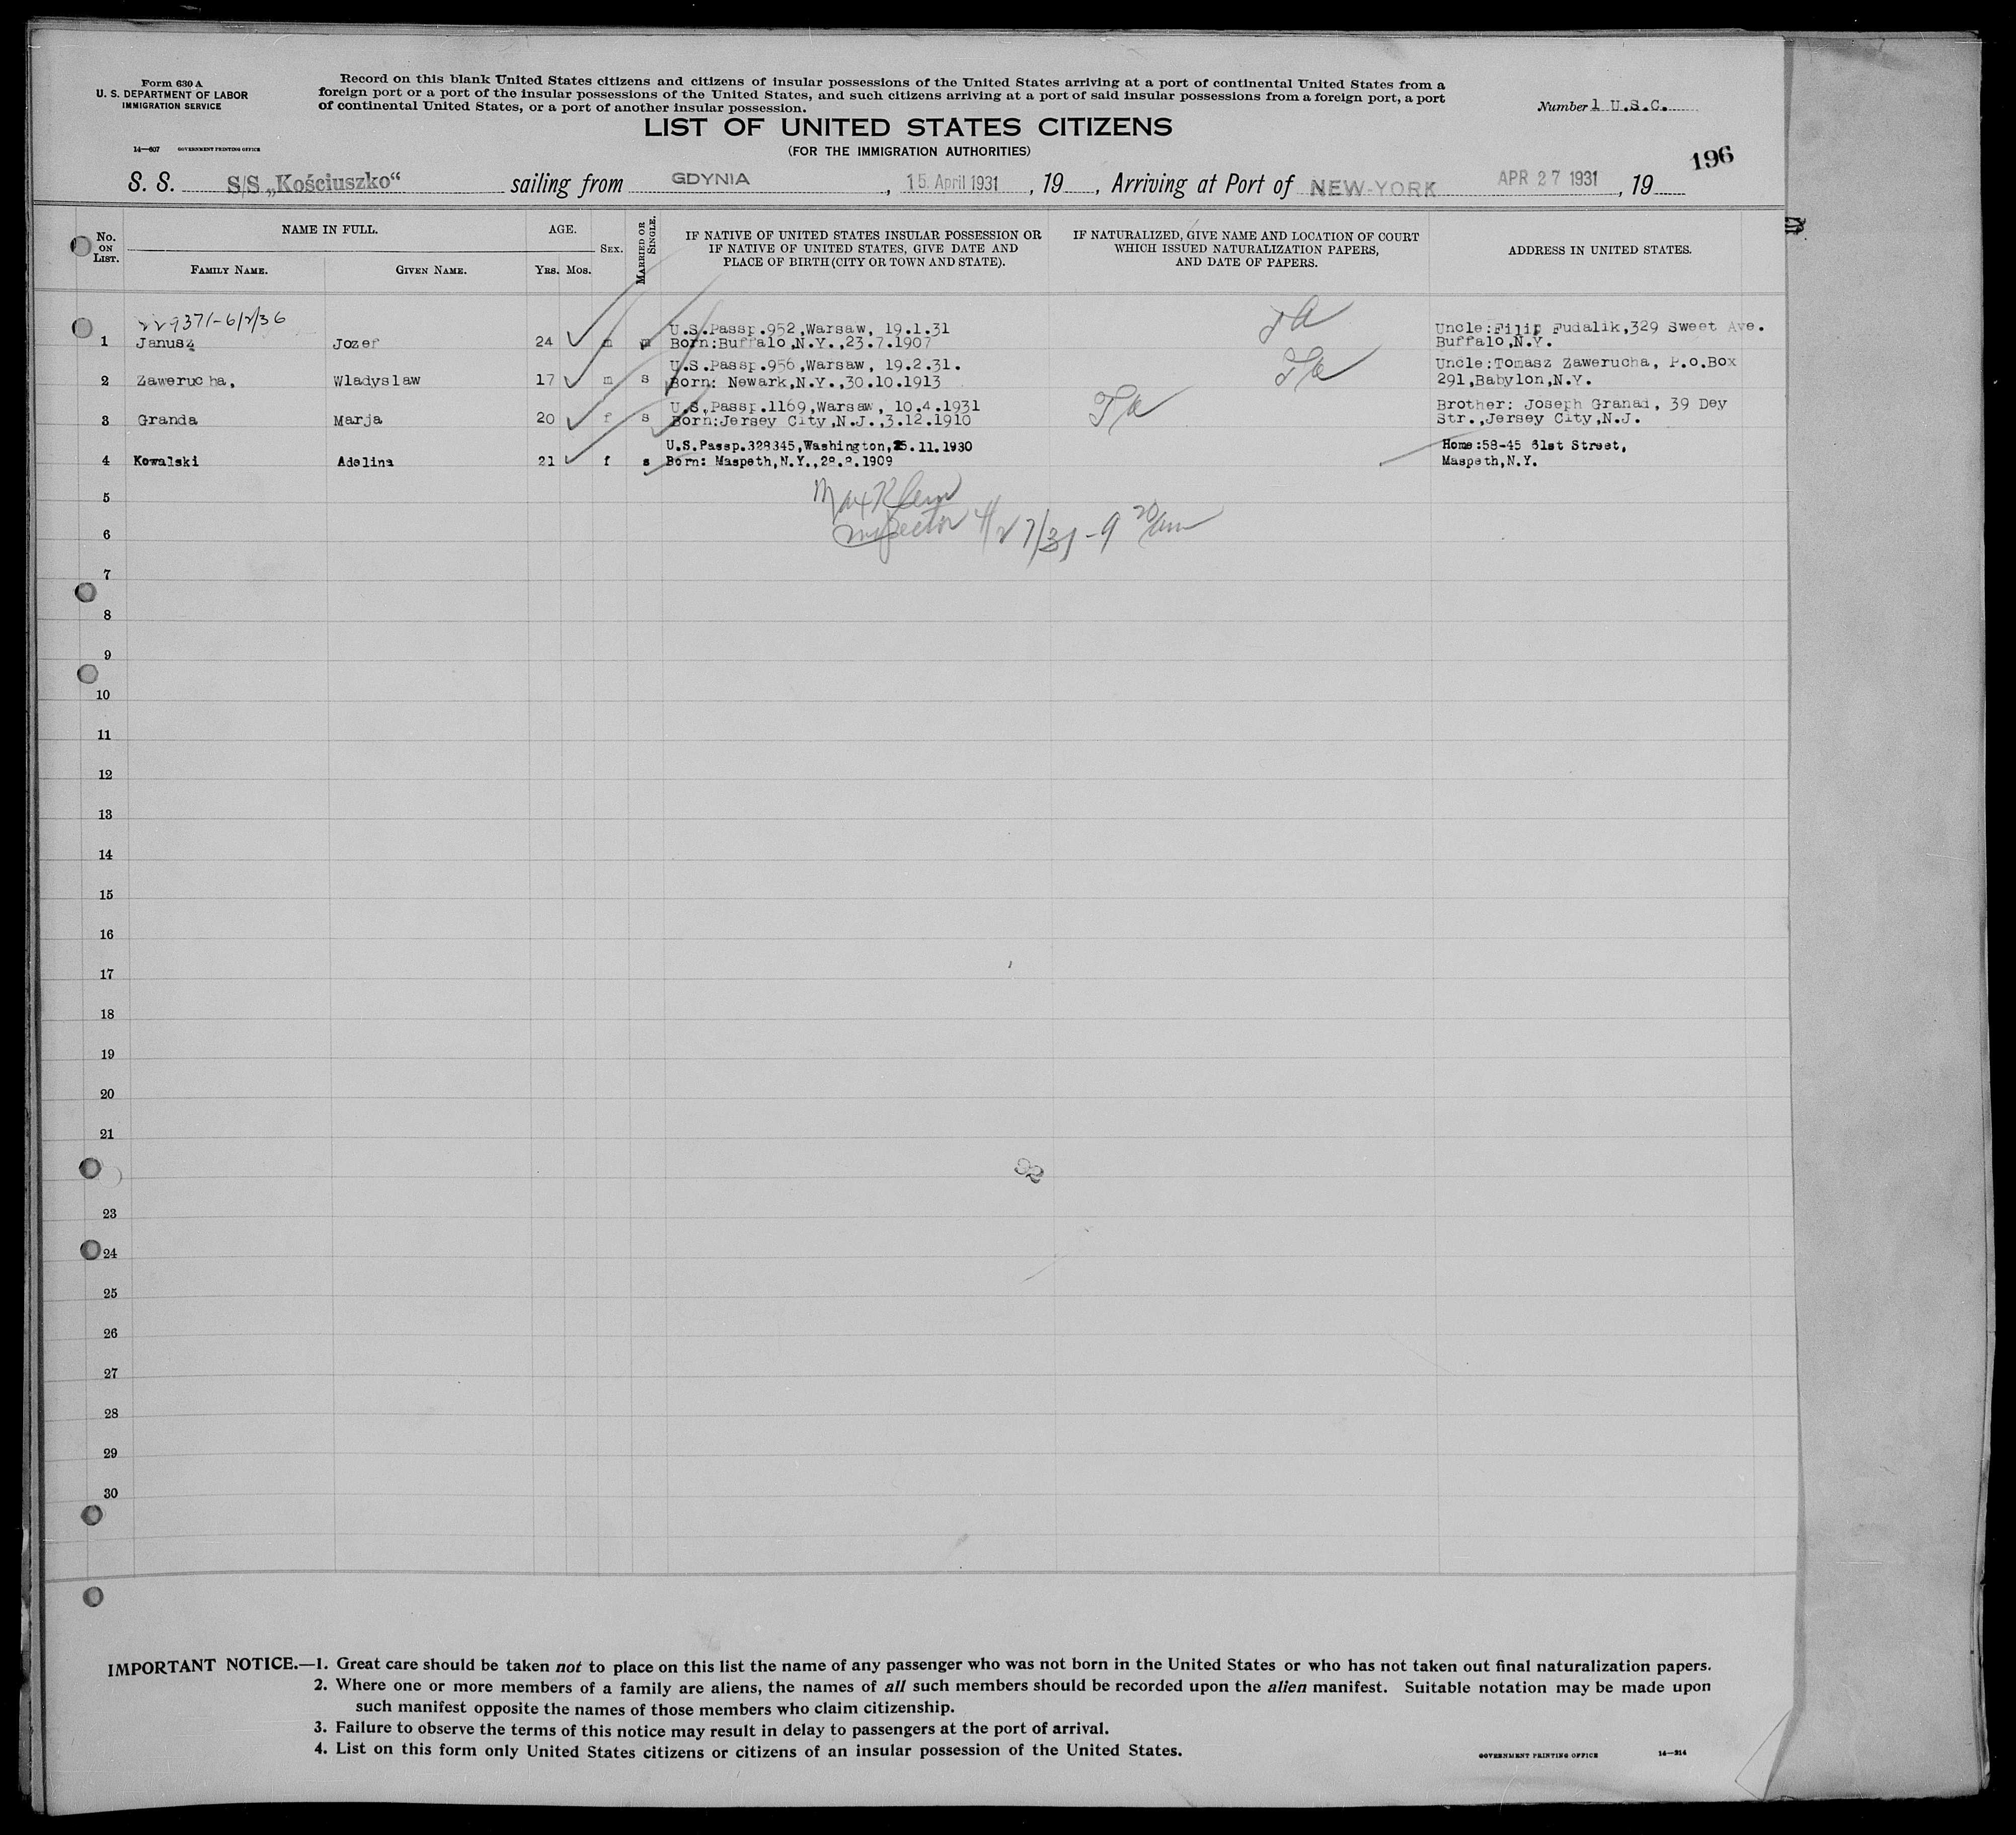 Form 630 A
U. S. DEPARTMENT OF LABOR
IMMIGRATION SERVICE
14—607 GOVERNMENT PRINTING OFFICE
Record on this blank United States citizens and citizens of insular possessions of the United States arriving at a port of continental United States from a
foreign port or a port of the insular possessions of the United States, and such citizens arriving at a port of said insular possessions from a foreign port, a port
of continental United States, or a port of another insular possession.
Number 1 U.S.C.
LIST OF UNITED STATES CITIZENS
(FOR THE IMMIGRATION AUTHORITIES)
196
S. S. S/S „Kościuszko“ sailing from GDYNIA, 15. April 1931, 19 , Arriving at Port of NEW-YORK APR 27 1931, 19
No. ON LIST.
NAME IN FULL.
FAMILY NAME. GIVEN NAME.
AGE.
YRS. MOS.
SEX.
MARRIED OR SINGLE.
IF NATIVE OF UNITED STATES INSULAR POSSESSION OR
IF NATIVE OF UNITED STATES, GIVE DATE AND
PLACE OF BIRTH (CITY OR TOWN AND STATE).
IF NATURALIZED, GIVE NAME AND LOCATION OF COURT
WHICH ISSUED NATURALIZATION PAPERS,
AND DATE OF PAPERS.
ADDRESS IN UNITED STATES.
229371-6/2/36
U.S.Passp.952,Warsaw, 19.1.31 Uncle:Filip Fudalik,329 Sweet Ave.
1 Janusz Jozef 24 m m Born:Buffalo,N.Y.,23.7.1907 Buffalo,N.Y.
U.S.Passp.956,Warsaw, 19.2.31. Uncle:Tomasz Zawerucha, P.o.Box
2 Zawerucha, Wladyslaw 17 m s Born: Newark,N.Y.,30.10.1913 291,Babylon,N.Y.
U.S.Passp.1169,Warsaw, 10.4.1931 Brother: Joseph Granad, 39 Dey
3 Granda Marja 20 f s Born:Jersey City,N.J.,3.12.1910 Str.,Jersey City,N.J.
U.S.Passp.328345,Washington,25.11.1930 Home:58-45 61st Street,
4 Kowalski Adelina 21 f s Born: Maspeth,N.Y.,28.8.1909 Maspeth,N.Y.
5
Max Klein
6 Inspector 4/27/31-9 20/am
7
8
9
10
11
12
13
14
15
16
17
18
19
20
21
23
24
25
26
27
28
29
30
IMPORTANT NOTICE.—1. Great care should be taken not to place on this list the name of any passenger who was not born in the United States or who has not taken out final naturalization papers.
2. Where one or more members of a family are aliens, the names of all such members should be recorded upon the alien manifest. Suitable notation may be made upon
such manifest opposite the names of those members who claim citizenship.
3. Failure to observe the terms of this notice may result in delay to passengers at the port of arrival.
4. List on this form only United States citizens or citizens of an insular possession of the United States.
GOVERNMENT PRINTING OFFICE 14—214